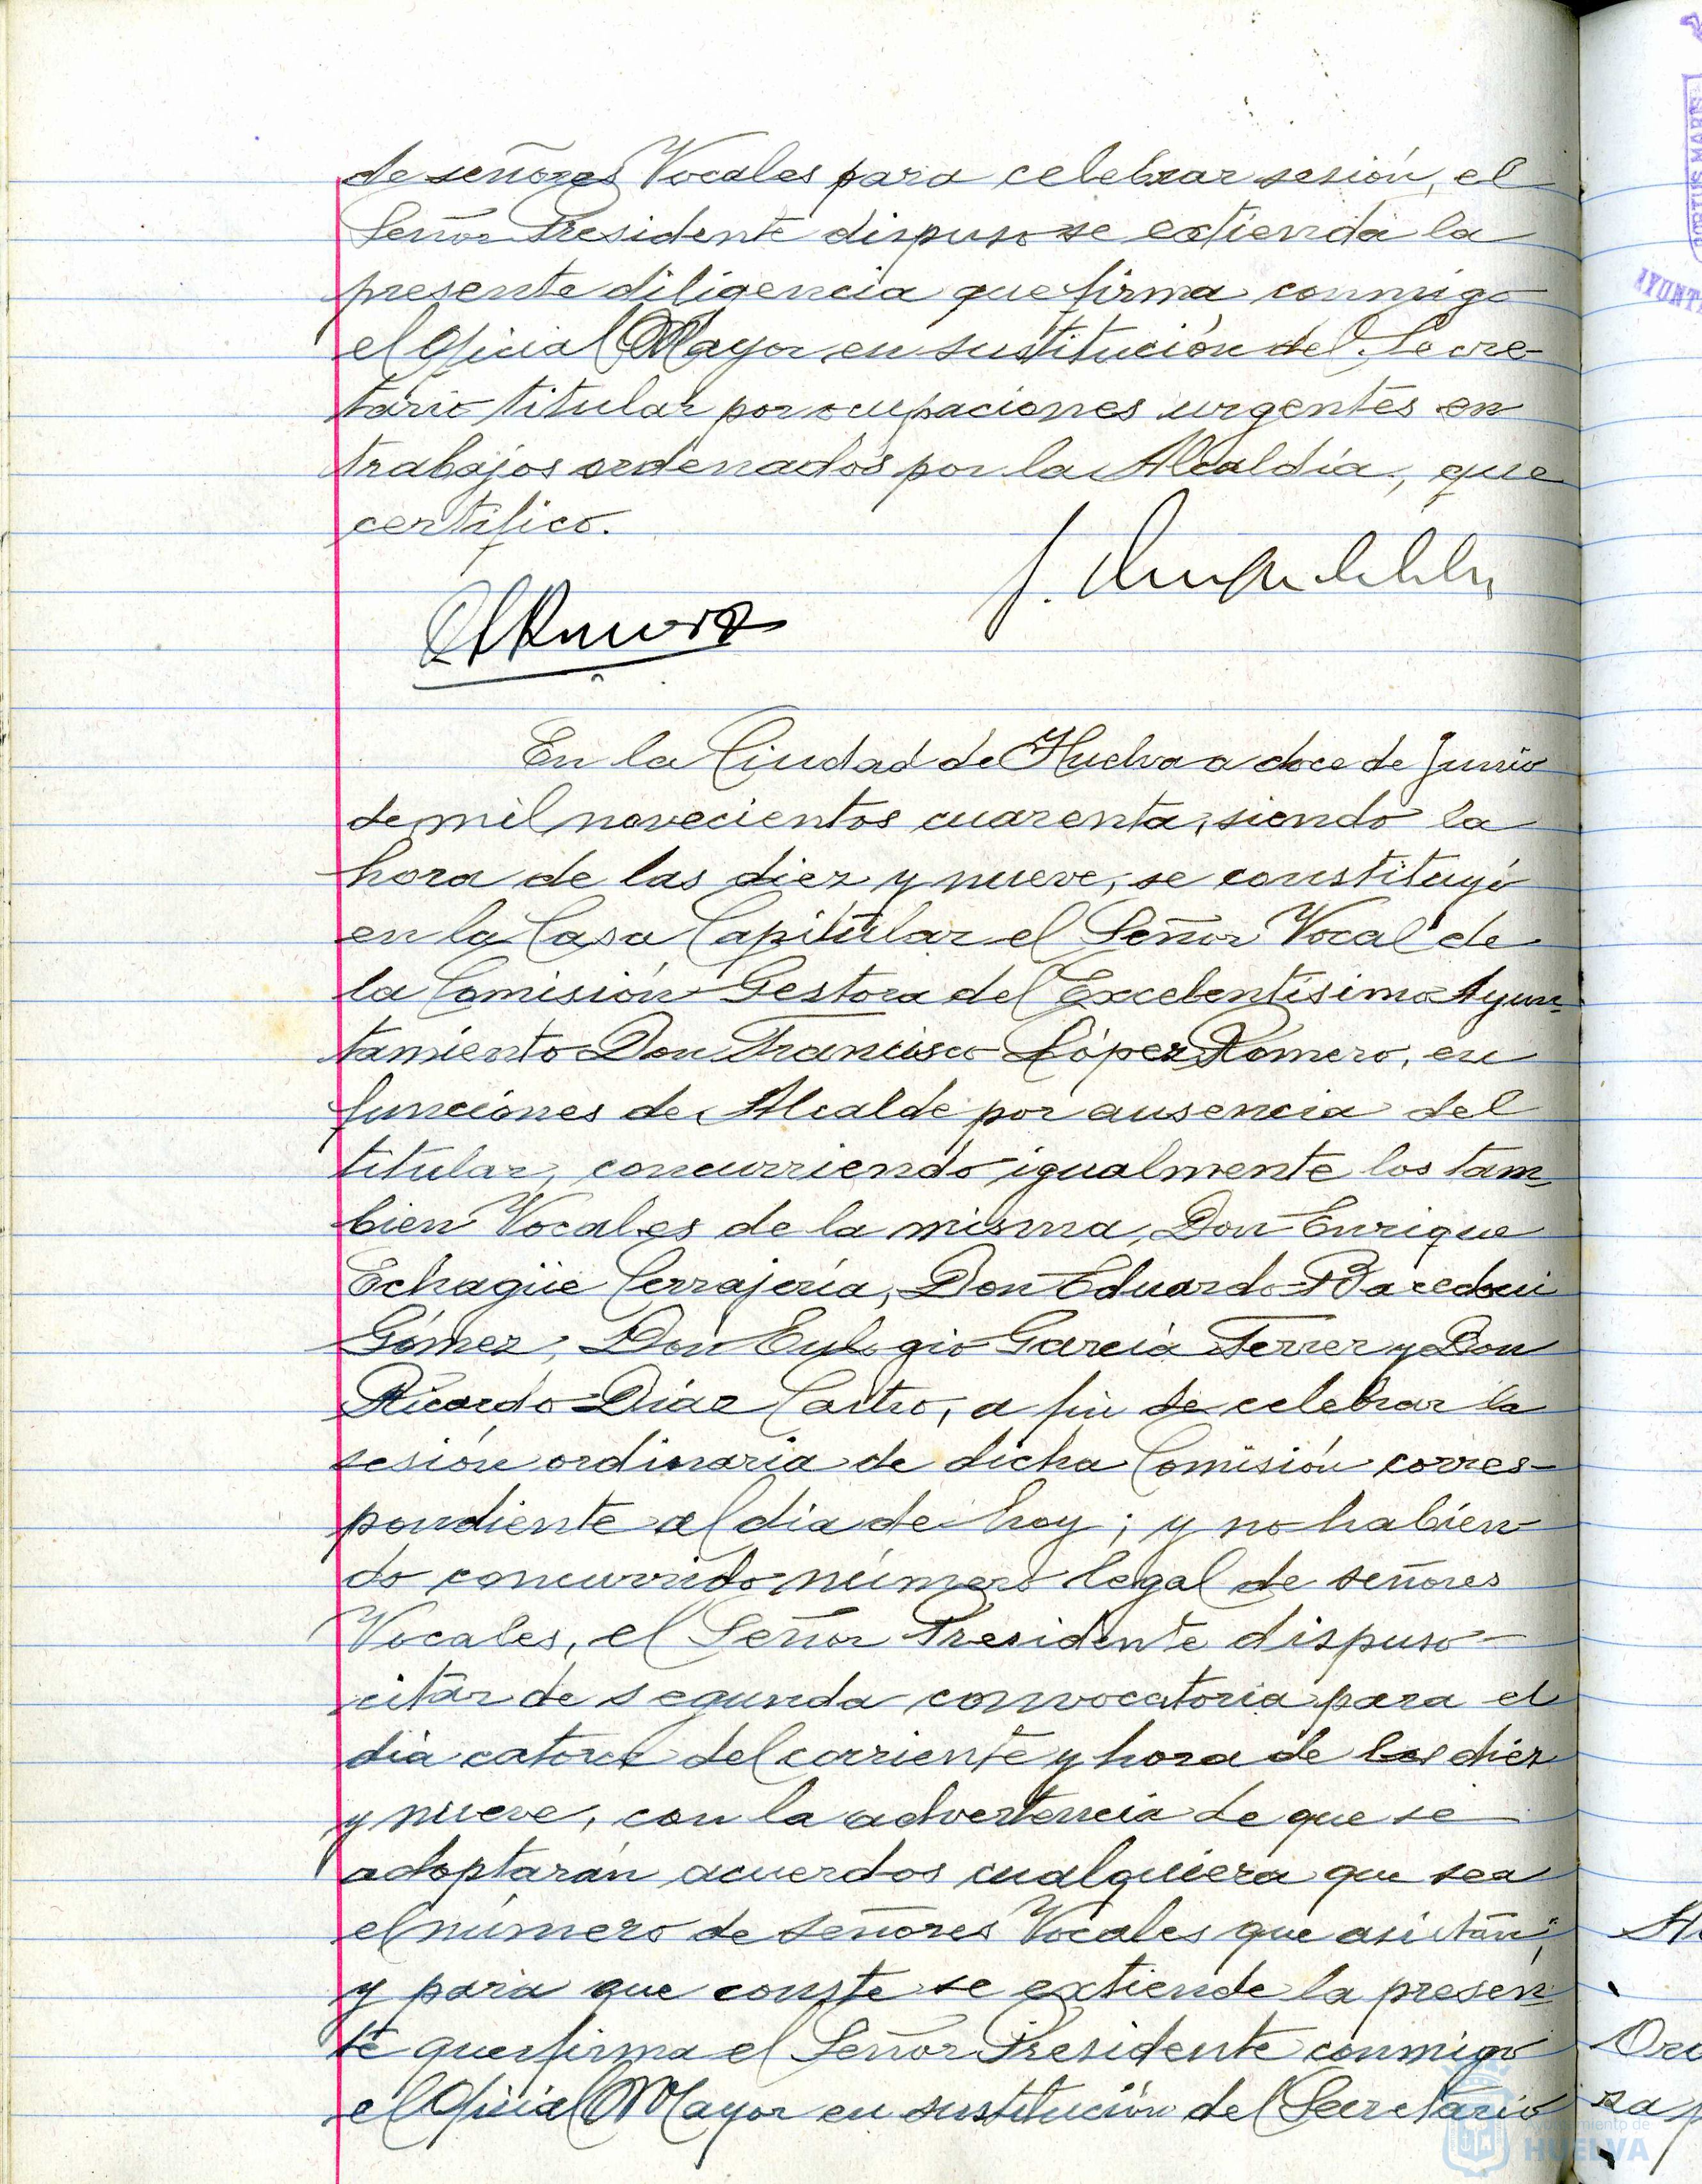 de señores Vocales para celebrar sesión, el
Señor Presidente dispuso se extienda la
presente diligencia que firma conmigo
el Oficial Mayor en sustitución del Secre-
tario titular por ocupaciones urgentes en
trabajos ordenados por la Alcaldía, que
certifico.
En la Ciudad de Huelva a doce de Junio
de mil novecientos cuarenta, siendo la
hora de las diez y nueve, se constituyó
en la Casa Capitular el Señor Vocal de
la Comisión Gestora del Excelentísimo Ayun-
tamiento Don Francisco López Romero, en
funciones de Alcalde por ausencia del
titular, concurriendo igualmente los tam-
bien Vocales de la misma, Don Enrique
Echagüe Cerrajería, Don Eduardo
Gómez, Don Eulogio García Ferrer y Don
Ricardo Díaz Castro, a fin de celebrar la
sesión ordinaria de dicha Comisión corres-
pondiente al dia de hoy; y no habien-
do concurrido número legal de señores
Vocales, el Señor Presidente dispuso
citar de segunda convocatoria para el
dia catorce del corriente y hora de las diez
y nueve, con la advertencia de que se
adoptarán acuerdos cualquiera que sea
el número de señores Vocales que asistan;
y para que conste se extiende la presen-
te que firma el Señor Presidente conmigo
el Oficial Mayor en sustitución del Secretario
Ayuntamiento de
HUELVA